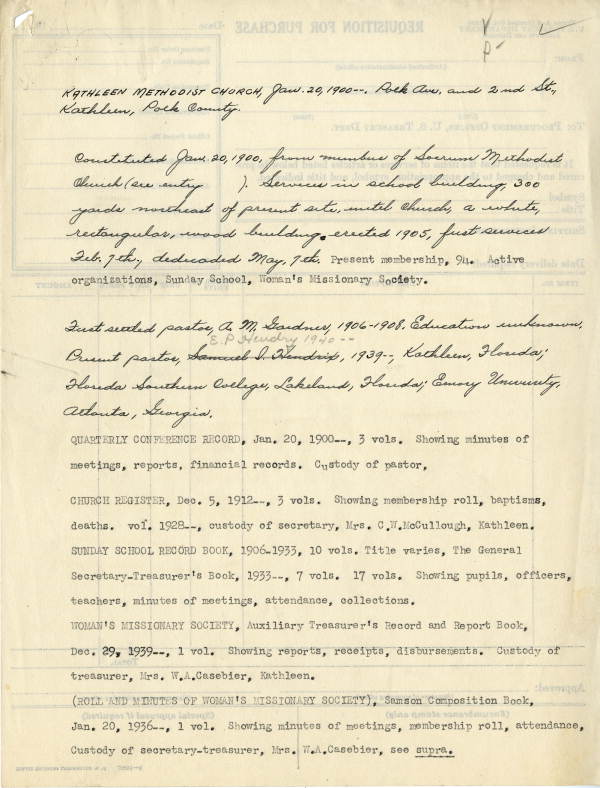 KATHLEEN METHODIST CHURCH, Jan. 20, 1900--. Polk Ave. and 2nd St.,
Kathleen, Polk County.
Constituted Jan. 20, 1900, from members of Socrum Methodist
Church (see entry ). Services in school building, 300
yards northeast of present site, until church, a white,
rectangular, wood building, erected 1905, first services
Feb. 7th., dedicated May, 7th. Present membership, 94. Active
organizations, Sunday School, Woman's Missionary Society.
First settled pastor, A. M. Gardner, 1906-1908. Education unknown.
E.P. Hendry 1940--
Present pastor, Samuel I. Hendrix, 1939--, Kathleen, Florida;
Florida Southern College, Lakeland, Florida; Emory University,
Atlanta, Georgia.
QUARTERLY CONFERENCE RECORD, Jan. 20, 1900--, 3 vols. Showing minutes of
meetings, reports, financial records. Custody of pastor.
CHURCH REGISTER, Dec. 5, 1912--, 3 vols. Showing membership roll, baptisms,
deaths. vol. 1928--, custody of secretary, Mrs. C.W.McCullough, Kathleen.
SUNDAY SCHOOL RECORD BOOK, 1906-1933, 10 vols. Title varies, The General
Secretary-Treasurer's Book, 1933--, 7 vols. 17 vols. Showing pupils, officers,
teachers, minutes of meetings, attendance, collections.
WOMAN'S MISSIONARY SOCIETY, Auxiliary Treasurer's Record and Report Book,
Dec. 29, 1939--, 1 vol. Showing reports, receipts, disbursements. Custody of
treasurer, Mrs. W.A.Casebier, Kathleen.
(ROLL AND MINUTES OF WOMAN'S MISSIONARY SOCIETY), Samson Composition Book,
Jan. 20, 1936--, 1 vol. Showing minutes of meetings, membership roll, attendance,
Custody of secretary-treasurer, Mrs. W.A.Casebier, see supra.